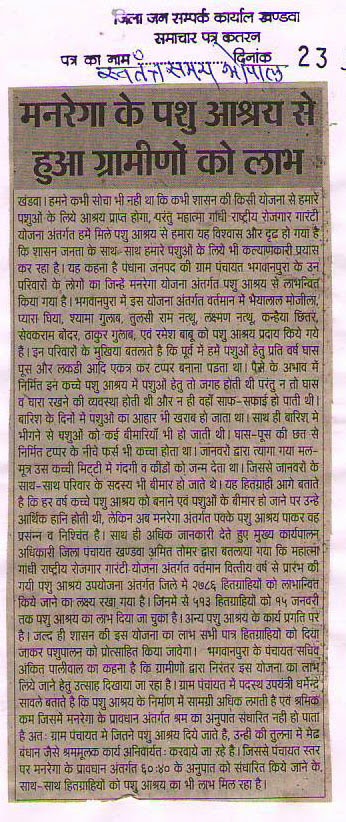 जिला जन सम्पर्क कार्याल खण्डवा
समाचार पत्र कतरन
पत्र का नाम स्वतंत्र समय भोपाल दिनांक 23
मनरेगा के पशु आश्रय से
हुआ ग्रामीणों को लाभ
खंडवा। हमने कभी सोचा भी नही था कि कभी शासन की किसी योजना से हमारे
पशुओं के लिये आश्रय प्राप्त होगा, परंतु महात्मा गांधी राष्ट्रीय रोजगार गारंटी
योजना अंतर्गत हमें मिले पशु आश्रय से हमारा यह विश्वास और दृढ हो गया है
कि शासन जनता के साथ-साथ हमारे पशुओं के लिये भी कल्याणकारी प्रयास
कर रहा है। यह कहना है पंधाना जनपद की ग्राम पंचायत भगवानपुरा के उन
परिवारों के लोगों का जिन्हे मनरेगा योजना अंतर्गत पशु आश्रय से लाभन्वित
किया गया है। भगवानपुरा में इस योजना अंतर्गत वर्तमान में भैयालाल मोजीला,
प्यारा घिया, श्यामा गुलाब, तुलसी राम नत्थु, लक्ष्मण नत्थु, कन्हैया छितर,
सेवकराम बोदर, ठाकुर गुलाब, एवं रमेश बाबू को पशु आश्रय प्रदाय किये गये
है। इन परिवारों के मुखिया बतलाते है कि पूर्व में हमे पशुओं हेतु प्रति वर्ष घास
पूस और लकडी आदि एकत्र कर टप्पर बनाना पडता था। पैसे के अभाव में
निर्मित इन कच्चे पशु आश्रय में पशुओं हेतु तो जगह होती थी परंतु न तो घास
व चारा रखने की व्यवस्था होती थी और न ही वहाँ साफ-सफाई हो पाती थी।
बारिश के दिनों में पशुओं का आहार भी खराब हो जाता था। साथ ही बारिश मे
भीगने से पशुओं को कई बीमारियाँ भी हो जाती थी। घास-पूस की छत से
निर्मित टप्पर के नीचे फर्स भी कच्चा होता था। जानवरों द्वारा त्यागा गया मल-
मूत्र उस कच्ची मिट्टी में गंदगी व कीडों को जन्म देता था। जिससे जानवरो के
साथ-साथ परिवार के सदस्य भी बीमार हो जाते थे। यह हितग्राही आगे बताते
है कि हर वर्ष कच्चे पशु आश्रय को बनाने एवं पशुओं के बीमार हो जाने पर उन्हे
आर्थिक हानि होती थी, लेकिन अब मनरेगा अंतर्गत पक्के पशु आश्रय पाकर वह
प्रसन्न व निश्चिंत है। साथ ही अधिक जानकारी देते हुए मुख्य कार्यपालन
अधिकारी जिला पंचायत खण्डवा अमित तोमर द्वारा बतलाया गया कि महात्मा
गांधी राष्ट्रीय रोजगार गारंटी योजना अंतर्गत वर्तमान वित्तीय वर्ष से प्रारंभ की
गयी पशु आश्रय उपयोजना अंतर्गत जिले मे २७८६ हितग्राहियों को लाभान्वित
किये जाने का लक्ष्य रखा गया है। जिनमें से ५१३ हितग्राहियों को १५ जनवरी
तक पशु आश्रय का लाभ दिया जा चुका है। अन्य पशु आश्रय के कार्य प्रगति पर
है। जल्द ही शासन की इस योजना का लाभ सभी पात्र हितग्राहियों को दिया
जाकर पशुपालन को प्रोत्साहित किया जावेगा। भगवानपुरा के पंचायत सचिव
अंकित पालीवाल का कहना है कि ग्रामीणों द्वारा निरंतर इस योजना का लाभ
लिये जाने हेतु उत्साह दिखाया जा रहा है। ग्राम पंचायत में पदस्थ उपयंत्री धर्मेन्द्र
सावले बताते है कि पशु आश्रय के निर्माण में सामग्री अधिक लगती है एवं श्रमिक
कम जिसमें मनरेगा के प्रावधान अंतर्गत श्रम का अनुपात संधारित नही हो पाता
है अतः ग्राम पंचायत में जितने पशु आश्रय दिये जाते है, उन्ही की तुलना में मेढ
बंधान जैसे श्रममूलक कार्य अनिवार्यतः करवाये जा रहे है। जिससे पंचायत स्तर
पर मनरेगा के प्रावधान अंतर्गत ६०:४० के अनुपात को संधारित किये जाने के
साथ-साथ हितग्राहियों को पशु आश्रय का भी लाभ मिल रहा है।